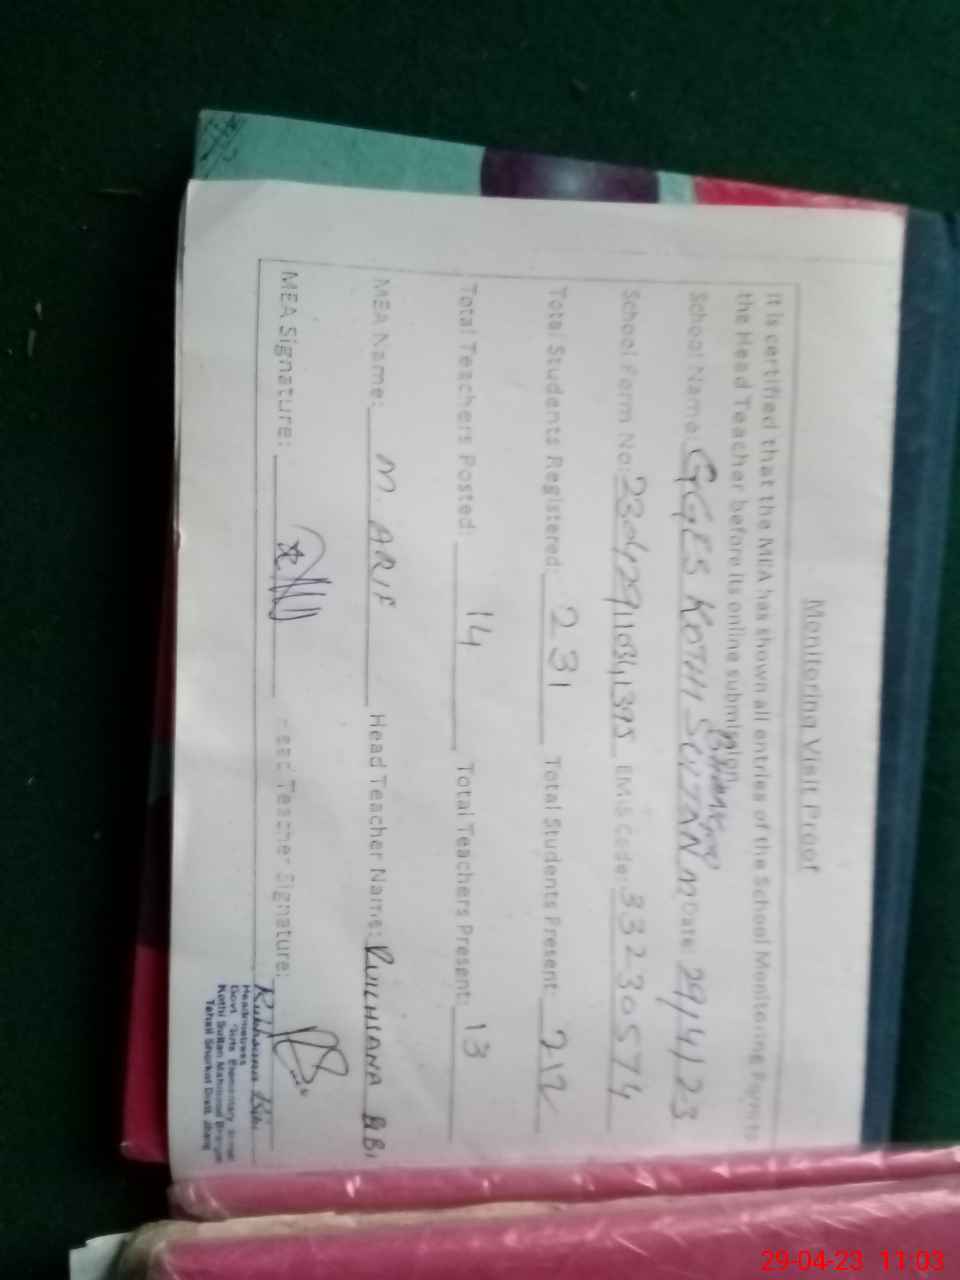 Monitoring Visit Proof
It is certified that the MEA has shown all entries of the School Monitoring Form to
the Head Teacher before its online submission.
School Name: GGES KOTHI SULTAN M Date: 29/4/23
School Form No: EMIS Code: 33230574
Total Students Registered: 231 Total Students Present: 212
Total Teachers Posted: 14 Total Teachers Present: 13
MEA Name: M. ARIF Head Teacher Name: RUKHSANA BBI
MEA Signature: Head Teacher Signature:
Rukhsana Bibi
Headmistress
Govt. Girls Elementary
Kothi Sultan Mahmood
Tehsil Shorkot Distt. Jhang
29-04-23 11:03